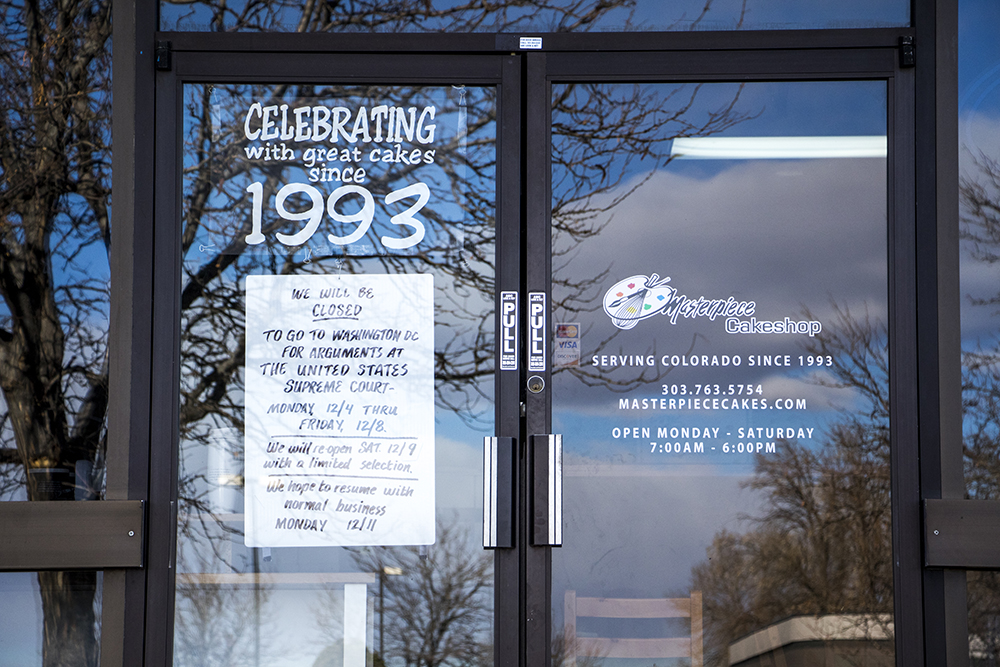 CELEBRATING
with great cakes
since
1993
WE WILL BE
CLOSED
TO GO TO WASHINGTON DC
FOR ARGUMENTS AT
THE UNITED STATES
SUPREME COURT-
MONDAY, 12/4 THRU
FRIDAY, 12/8.
We will re-open SAT. 12/9
with a limited selection.
We hope to resume with
normal business
MONDAY 12/11
PULL
PULL
VISA
Masterpiece
Cakeshop
SERVING COLORADO SINCE 1993
303.763.5754
MASTERPIECECAKES.COM
OPEN MONDAY - SATURDAY
7:00AM - 6:00PM